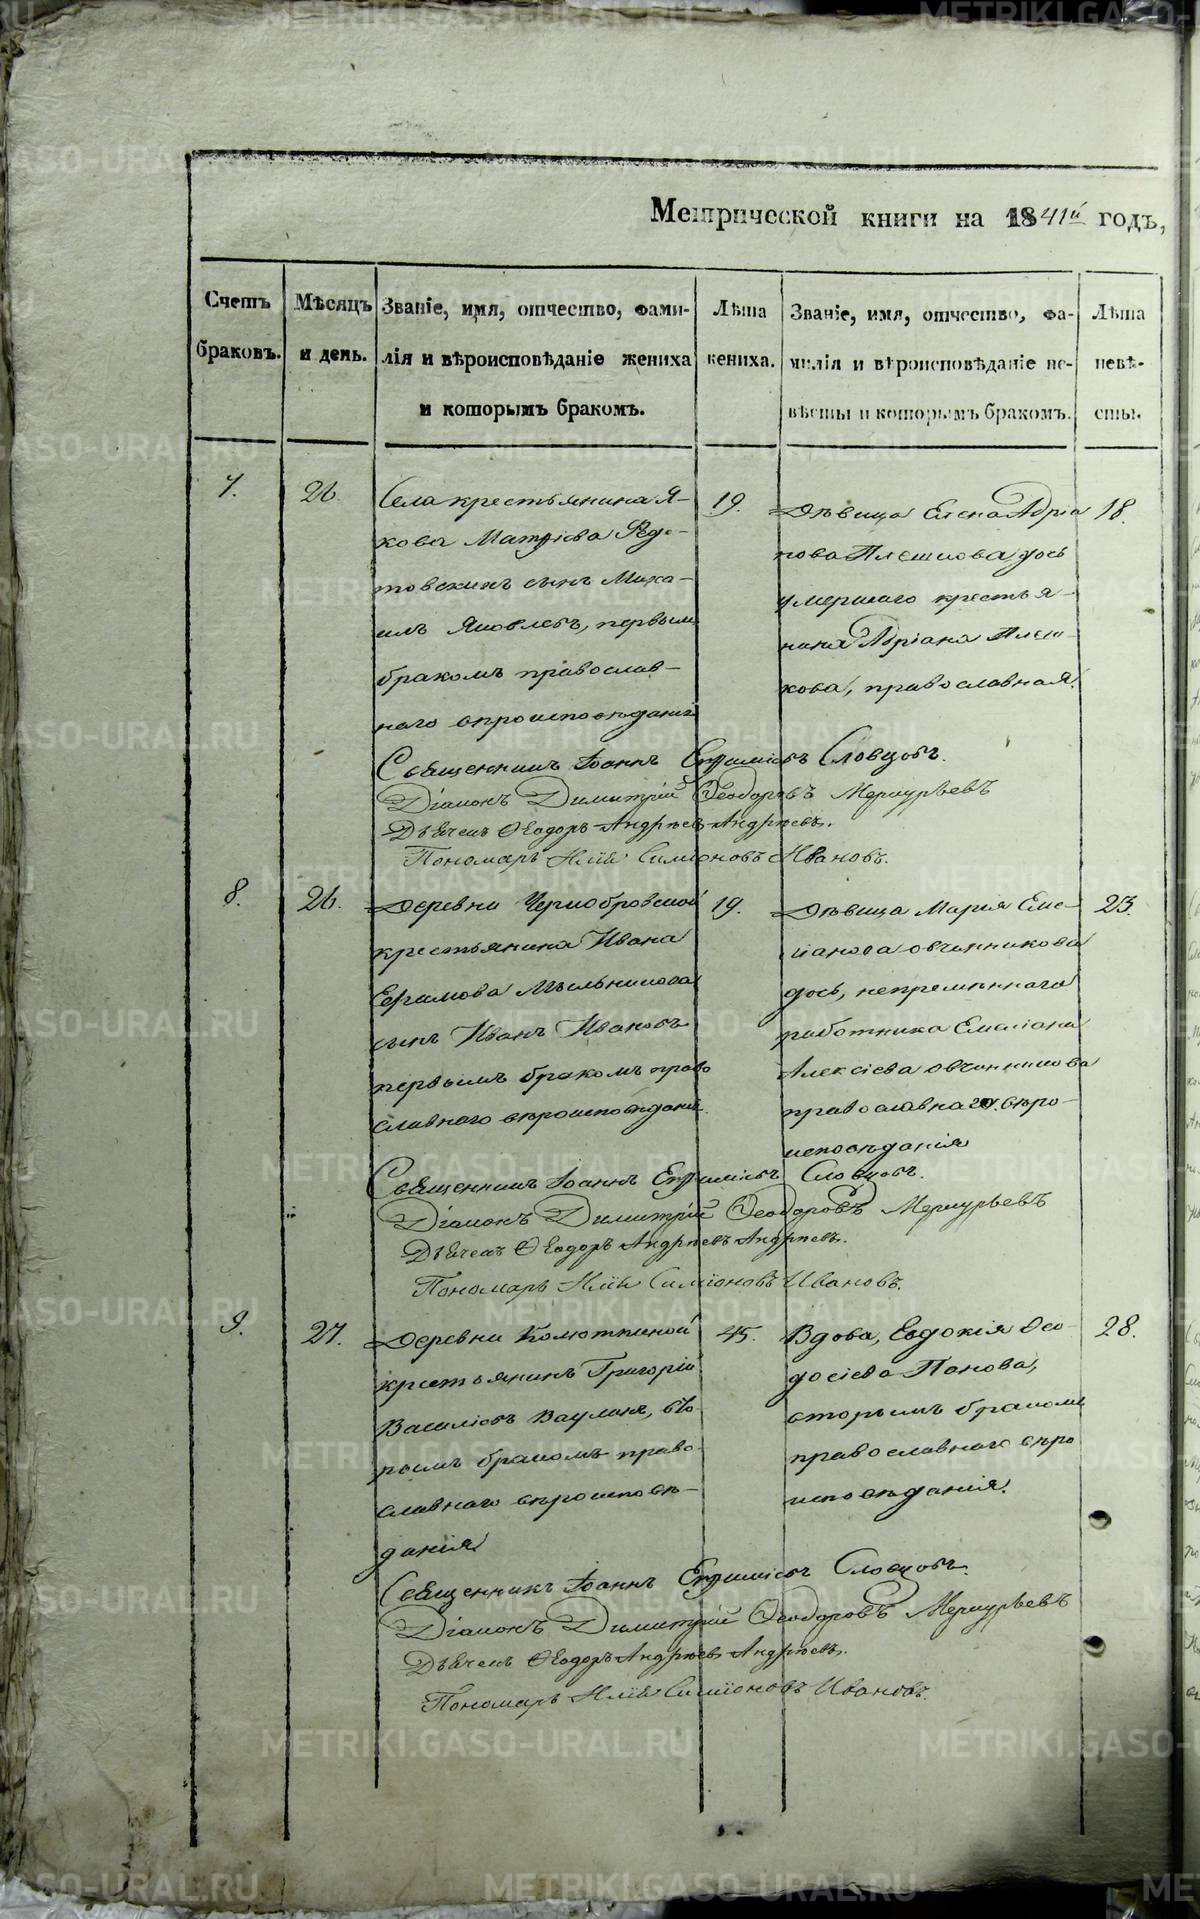 Метрической книги на 1841й годъ,
Счетъ браковъ.
Мѣсяцъ и день.
Званіе, имя, отчество, фами-
лія и вѣроисповѣданіе жениха
и которымъ бракомъ.
Лѣта жениха.
Званіе, имя, отчество, фа-
милія и вѣроисповѣданіе не-
вѣсты и которымъ бракомъ.
Лѣта невѣ-
сты.
7.
26.
Села крестьянина Я-
кова Матѳіева Ѳедо-
товскихъ сынъ Миха-
илъ Яковлевъ, первымъ
бракомъ православ-
наго вѣроисповѣданія
19.
Дѣвица Елена Адріа
нова Плешкова, дочь
умершаго крестья-
нина Адріана Плеш-
кова, православная.
18.
Священникъ Іоаннъ Евѳиміевъ Словцовъ.
Діаконъ Димитрій Ѳеодоровъ Меркурьевъ
Дьячекъ Ѳеодоръ Андреевъ Андреевъ.
Пономарь Илія Симіоновъ Ивановъ.
8.
26.
Деревни Чернобровской
крестьянина Ивана
Ефимова Мѣльникова
сынъ Иванъ Ивановъ
первымъ бракомъ право
славнаго вѣроисповѣданія.
19.
Дѣвица Марія Еме-
ліанова овчинникова
дочь, непремѣннаго
работника Емеліана
Алексіева овчинникова
православнаго вѣро-
исповѣданія
23.
Священникъ Іоаннъ Евѳиміевъ Словцовъ.
Діаконъ Димитрій Ѳеодоровъ Меркурьевъ
Дьячекъ Ѳеодоръ Андреевъ Андреевъ.
Пономарь Илія Симіоновъ Ивановъ.
9.
27.
Деревни Колюткиной
крестьянинъ Григорій
Василіевъ Ваулинъ, вто
рымъ бракомъ право-
славнаго вѣроисповѣ-
данія
45.
Вдова, Евдокія Ѳео-
досіева Панова,
вторымъ бракомъ
православнаго вѣро
исповѣданія.
28.
Священникъ Іоаннъ Евѳиміевъ Словцовъ.
Діаконъ Димитрій Ѳеодоровъ Меркурьевъ
Дьячекъ Ѳеодоръ Андреевъ Андреевъ.
Пономарь Илія Симіоновъ Ивановъ.
METRIKI.GASO-URAL.RU